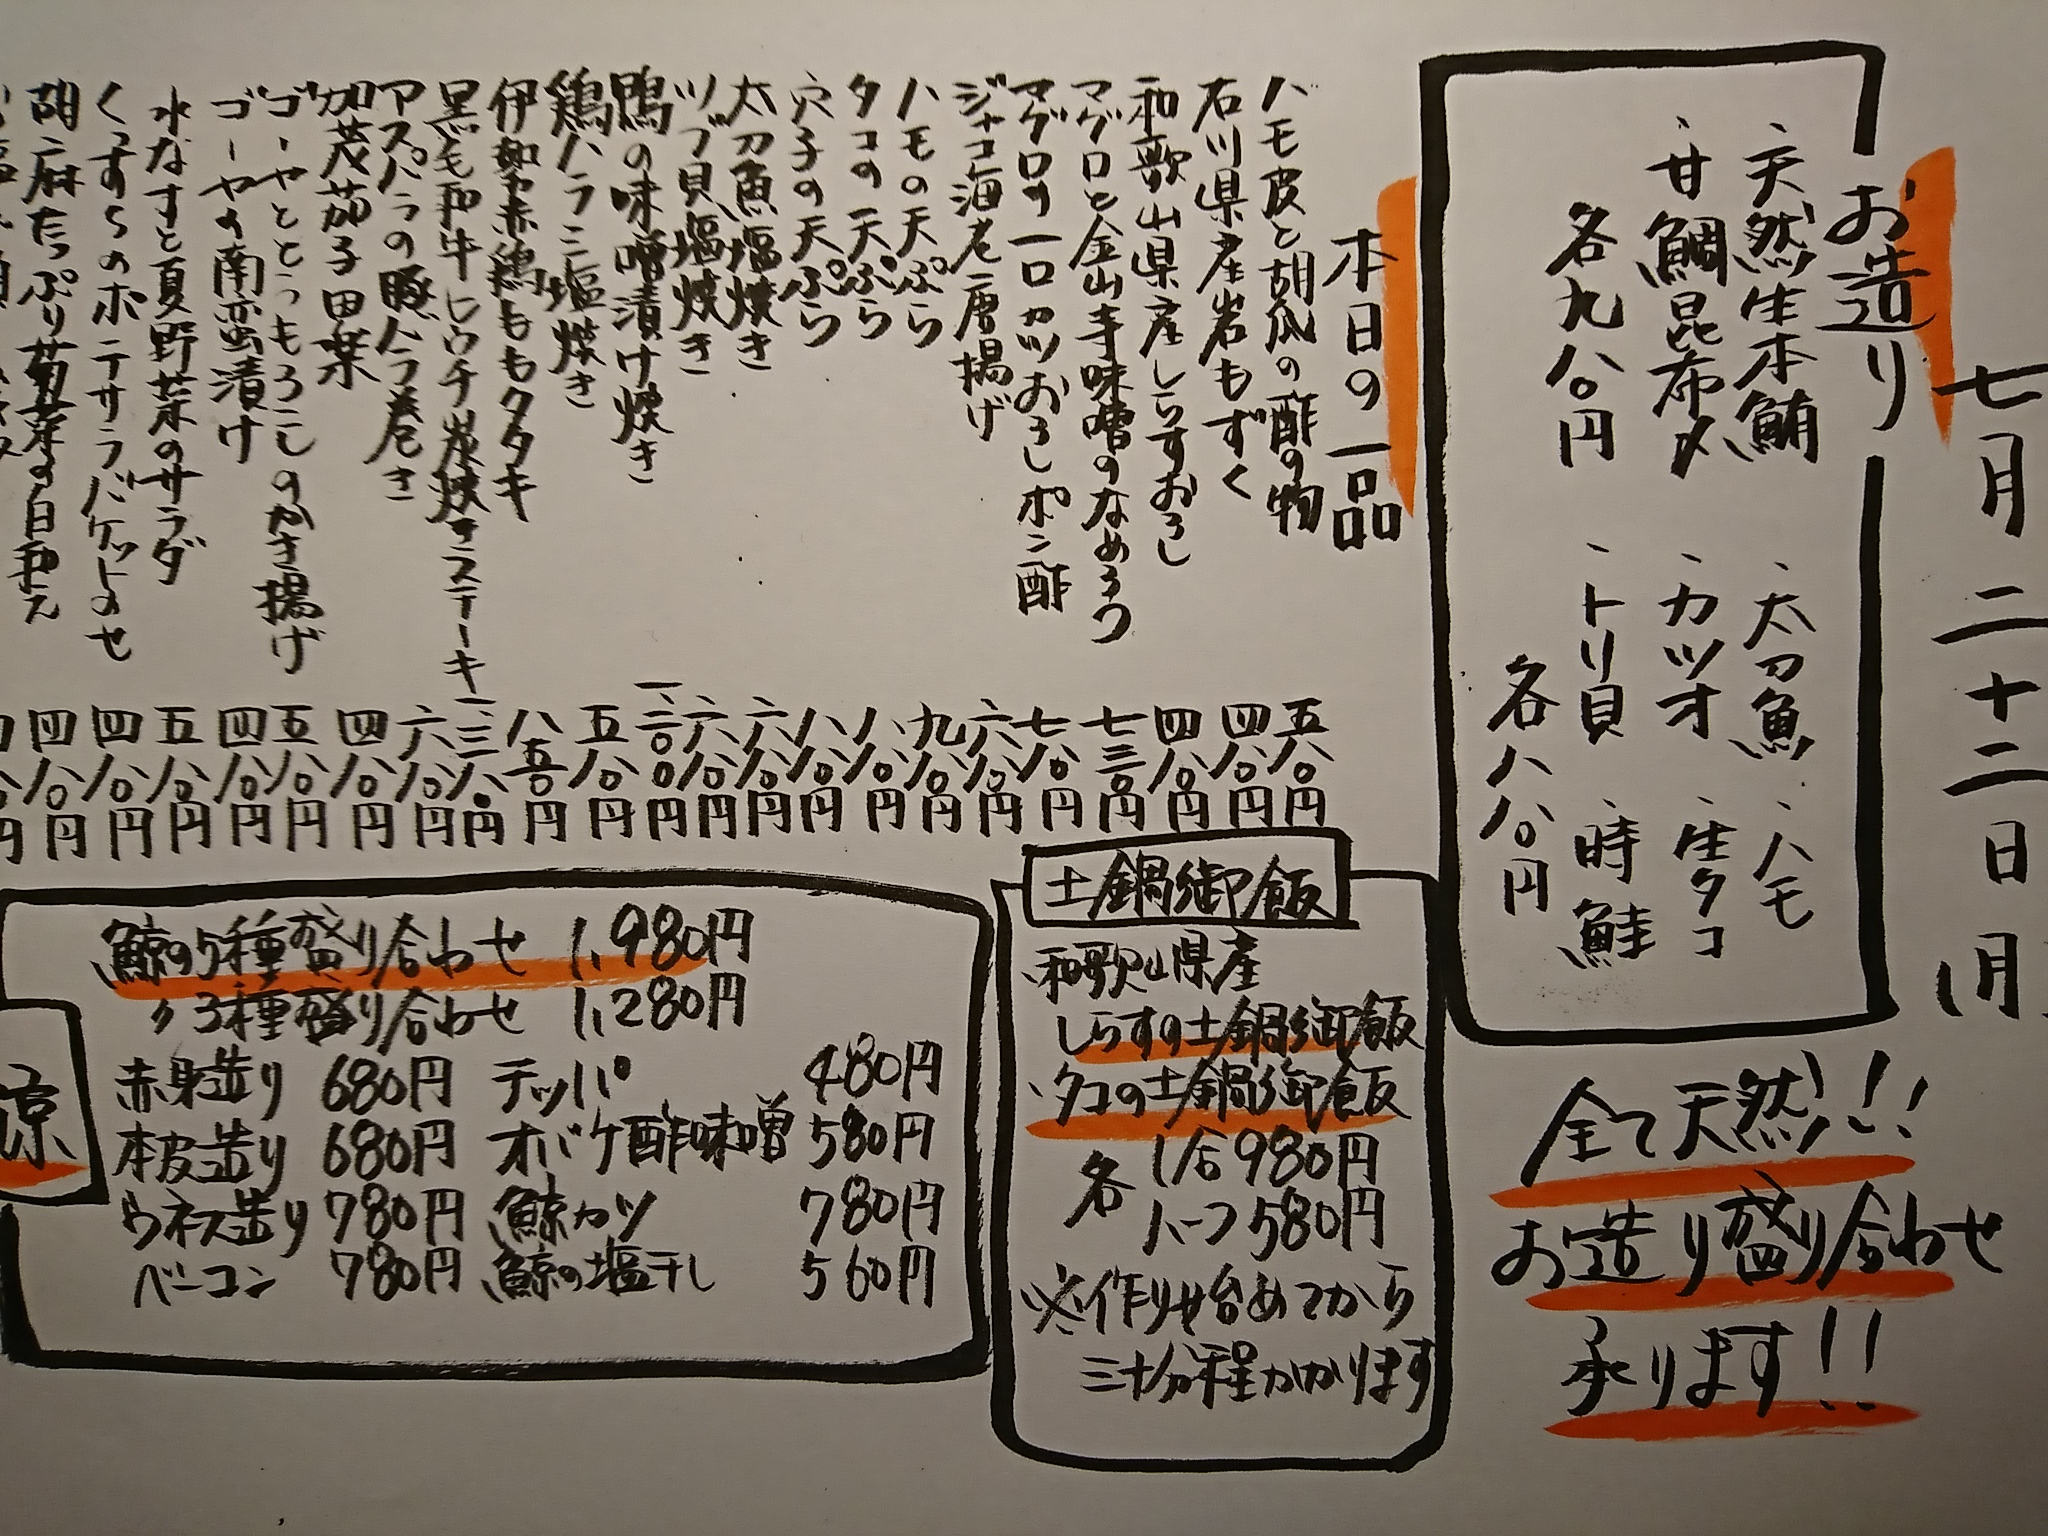 七月二十二日(月)
お造り
、天然生本鮪
、甘鯛昆布〆
各九八〇円
、太刀魚 、ハモ
、カツオ 、生タコ
、トリ貝 、時鮭
各八八〇円
全て天然!!
お造り盛り合わせ
承ります!!
本日の一品
ハモ皮と胡瓜の酢の物 五八〇円
石川県産岩もずく 四八〇円
和歌山県産しらすおろし 四八〇円
マグロと金山寺味噌のなめろう 七三〇円
マグロの一口カツおろしポン酢 七八〇円
ジャコ海老唐揚げ 六八〇円
ハモの天ぷら 九八〇円
タコの天ぷら 八八〇円
穴子の天ぷら 八八〇円
太刀魚塩焼き 六八〇円
ツブ貝塩焼き 六八〇円
鴨の味噌漬け焼き 一、二〇〇円
鶏ハラミ塩焼き 五八〇円
伊勢赤鶏ももタタキ 八五〇円
黒毛和牛ヒウチ炭焼きステーキ 一、三八〇円
アスパラの豚バラ巻き 六八〇円
加茂茄子田楽 四八〇円
ゴーヤととうもろこしのかき揚げ 五八〇円
ゴーヤの南蛮漬け 四八〇円
水なすと夏野菜のサラダ 五八〇円
くんすらのポテサラバケットのせ 四八〇円
胡麻たっぷり菊菜の白和え 四八〇円
土鍋御飯
和歌山県産
しらすの土鍋御飯
、タコの土鍋御飯
各 1合980円
ハーフ580円
※作り始めてから
三十分程かかります
鯨の5種盛り合わせ 1,980円
〃3種盛り合わせ 1,280円
赤身造り 680円 テッパ 480円
本皮造り 680円 オバケ酢味噌 580円
ウネス造り 780円 鯨カツ 780円
ベーコン 780円 鯨の塩干し 560円